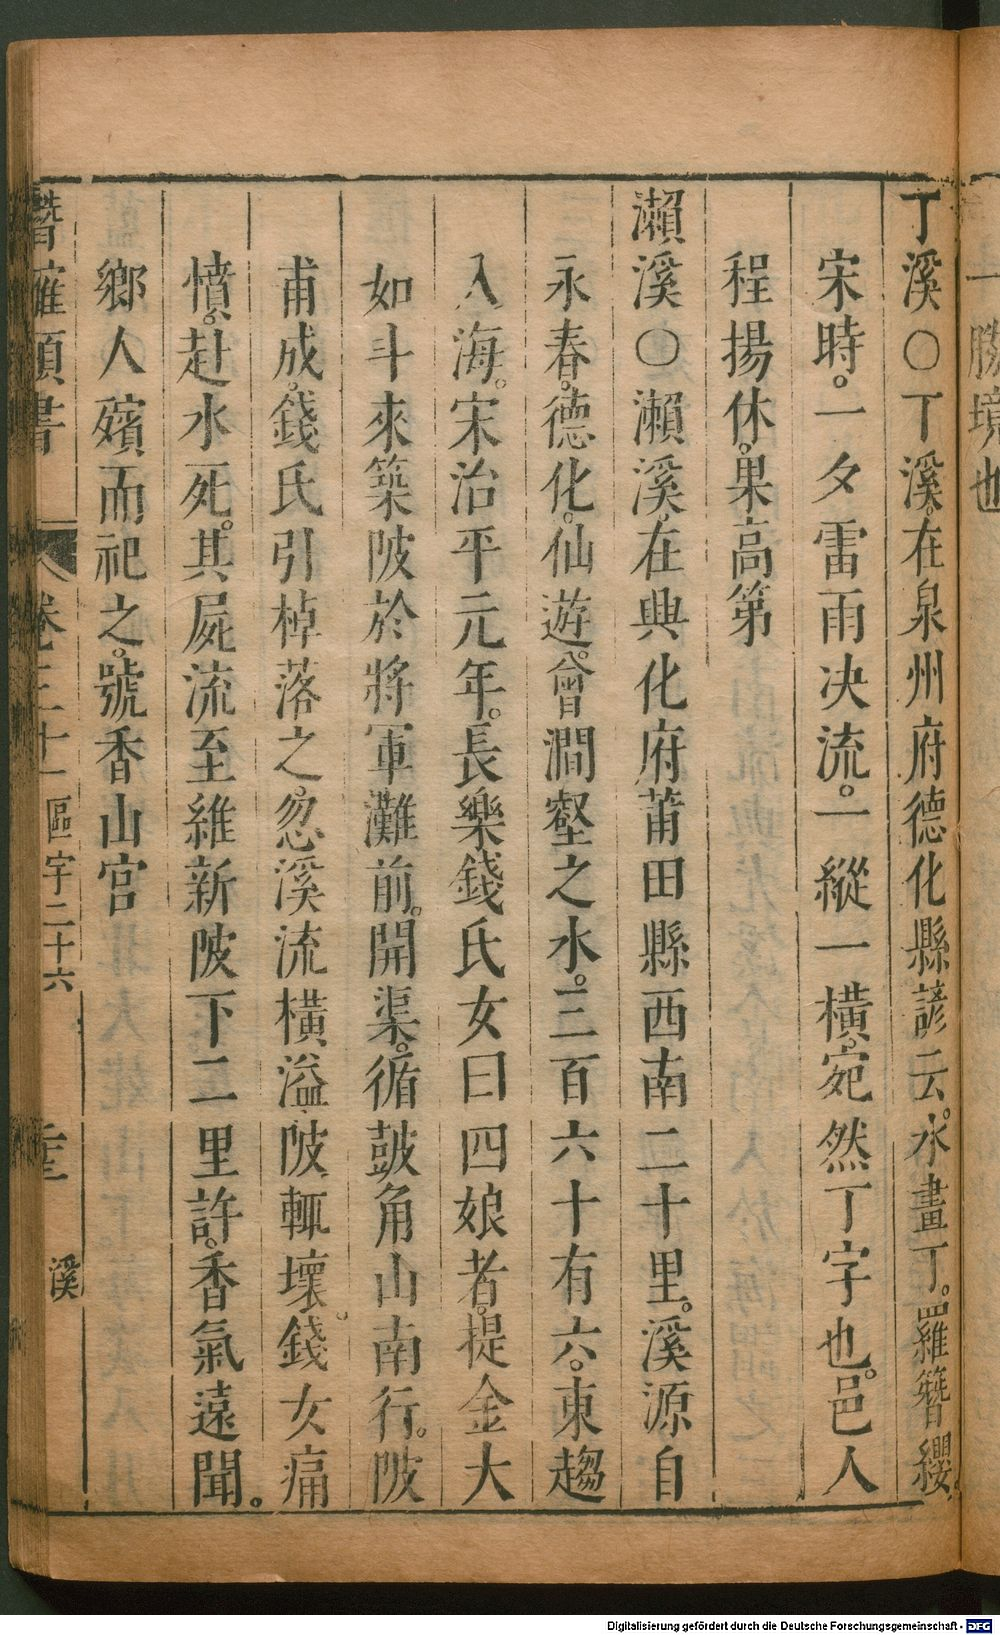 一勝境也
丁溪○丁溪在泉州府德化縣諺云水畫丁。羅簪纓。
宋時。一夕雷雨决流。一縱一橫。宛然丁字也。邑人
程揚休。果高第
瀨溪○瀨溪。在興化府莆田縣西南二十里。溪源自
永春。德化。仙遊。會澗壑之水。三百六十有六。東趨
入海。宋治平元年。長樂錢氏女曰四娘者。提金大
如斗來築陂於將軍灘前。開渠。循鼓角山南行。陂
甫成。錢氏引棹落之。忽溪流橫溢。陂輒壞。錢女痛
憤。赴水死。其屍流至維新陂下二里許。香氣遠聞。
鄉人殯而祀之。號香山宮
潛確類書 卷三十一 區宇二十六 溪
Digitalisierung gefördert durch die Deutsche Forschungsgemeinschaft - DFG